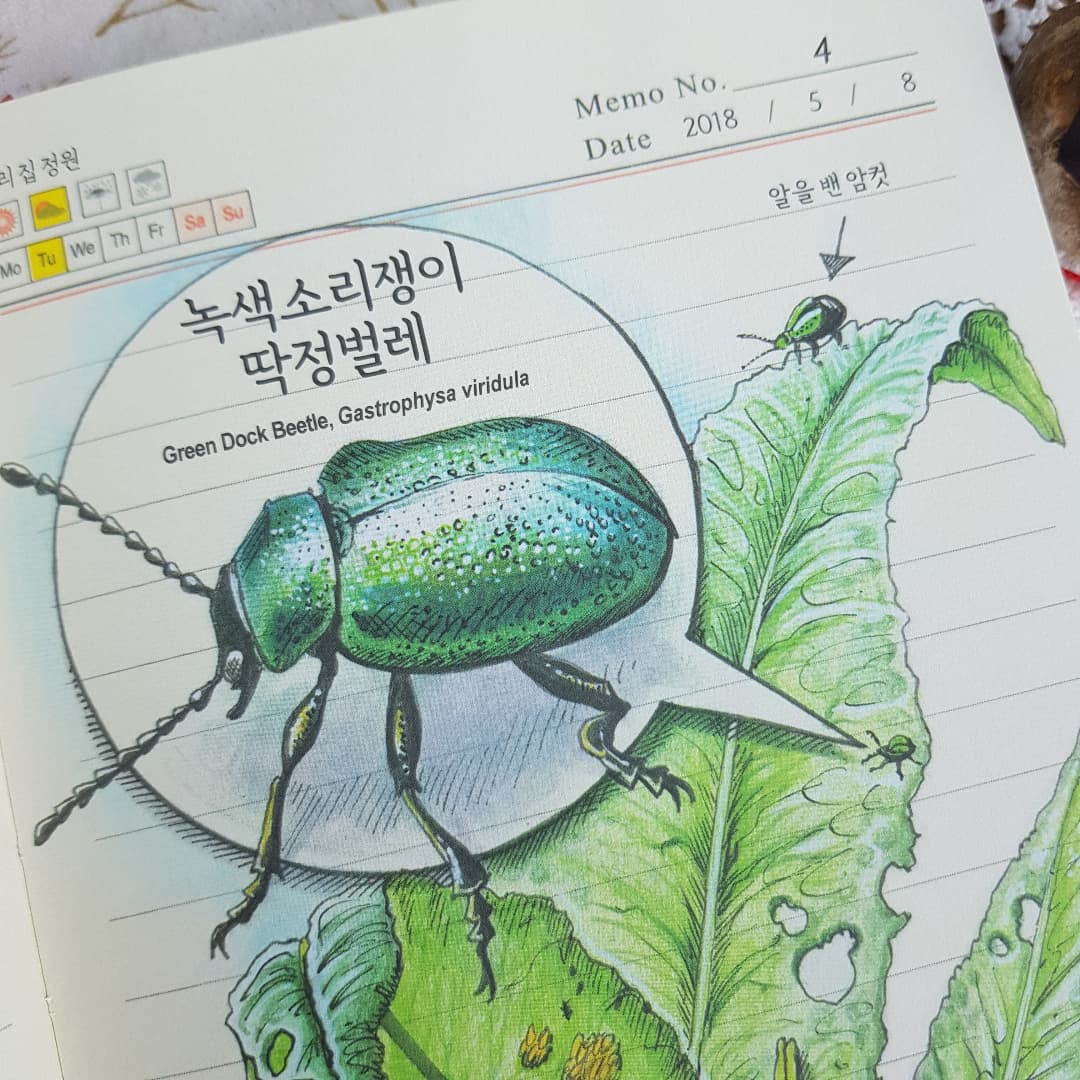 Memo No. 4
Date 2018 / 5 / 8
리집 정원
Mo Tu We Th Fr Sa Su
알을 밴 암컷
녹색소리쟁이
딱정벌레
Green Dock Beetle, Gastrophysa viridula